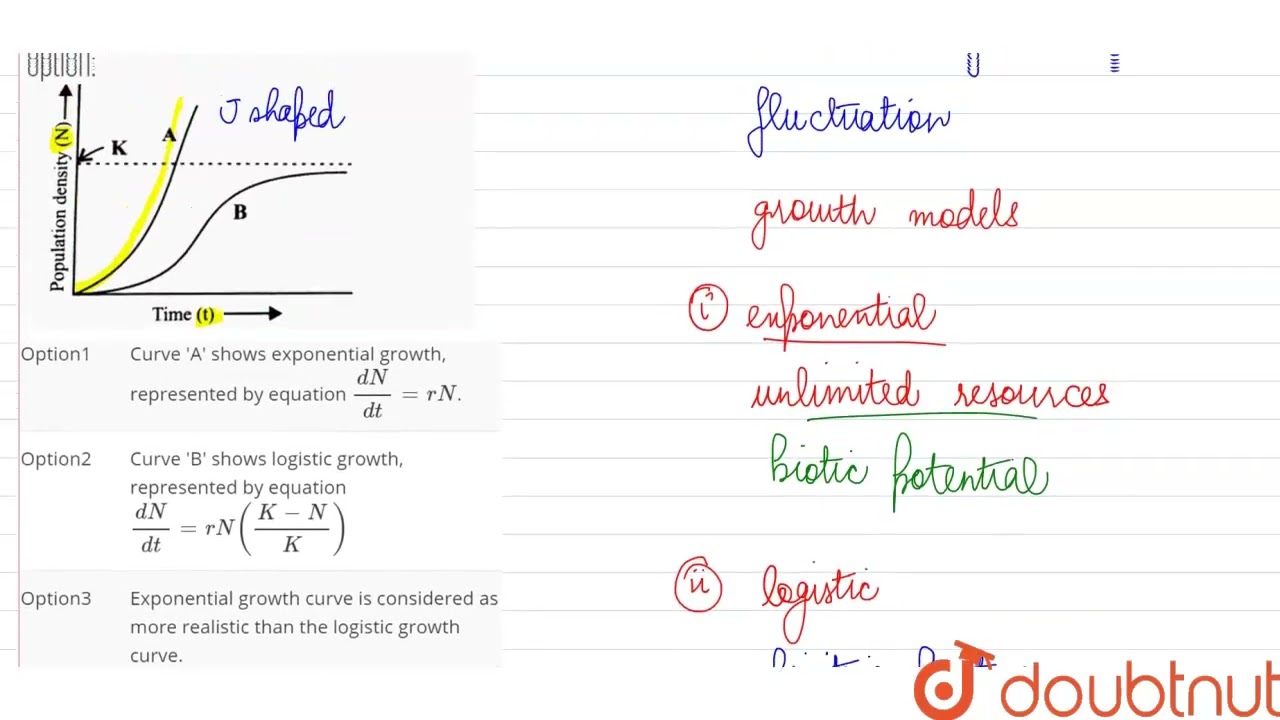 option:
Population density (N)
K
A
B
J shaped
Time (t)
Option1 Curve 'A' shows exponential growth,
represented by equation dN/dt = rN.
Option2 Curve 'B' shows logistic growth,
represented by equation
dN/dt = rN((K − N)/K)
Option3 Exponential growth curve is considered as
more realistic than the logistic growth
curve.
fluctuation
growth models
(i) exponential
unlimited resources
biotic potential
(ii) logistic
doubtnut